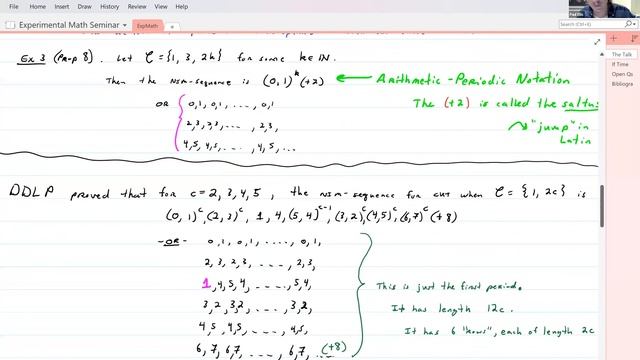 File Home Insert Draw History Review View Help
Experimental Math Seminar ExpMath
Search (Ctrl+E)
The Talk
If Time
Open Qs
Bibliogra
Ex 3 (Prop 8). Let C = {1, 3, 2k} for some k∈ℕ.
Then the NIM-sequence is (0,1)^k (+2) ← Arithmetic-Periodic Notation
The (+2) is called the saltus
"jump" in Latin
OR { 0,1, 0,1, ...., 0,1
2,3, 2,3, ..., 2,3,
4,5, 4,5, ..., 4,5, ...
DDLP proved that for c = 2, 3, 4, 5, the NIM-sequence for CUT when C = {1, 2c} is
(0,1)^c, (2,3)^c, 1, 4, (5,4)^{c-1}, (3,2)^c, (4,5)^c, (6,7)^c (+8)
-OR- 0,1, 0,1, ....., 0,1,
2,3, 2,3, ...., 2,3,
1,4,5,4, ....., 5,4,
3,2, 3,2, ...., 3,2,
4,5, 4,5, ..., 4,5,
6,7, 6,7, ..., 6,7, (+8)
This is just the first period.
It has length 12c.
It has 6 "rows", each of length 2c